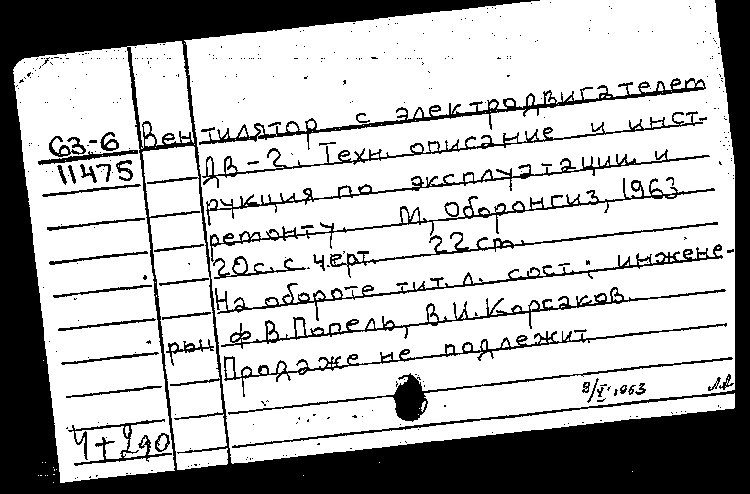 63-6 Вентилятор с электродвигателем
11475 ДВ-2. Техн. описание и инст-
рукция по эксплуатации и
ремонту. М., Оборонгиз, 1963
20с. с черт. 22 см.
На обороте тит. л. сост.: инжене-
ры Ф.В.Попель, В.И.Корсаков.
Продаже не подлежит.
8/V.1963